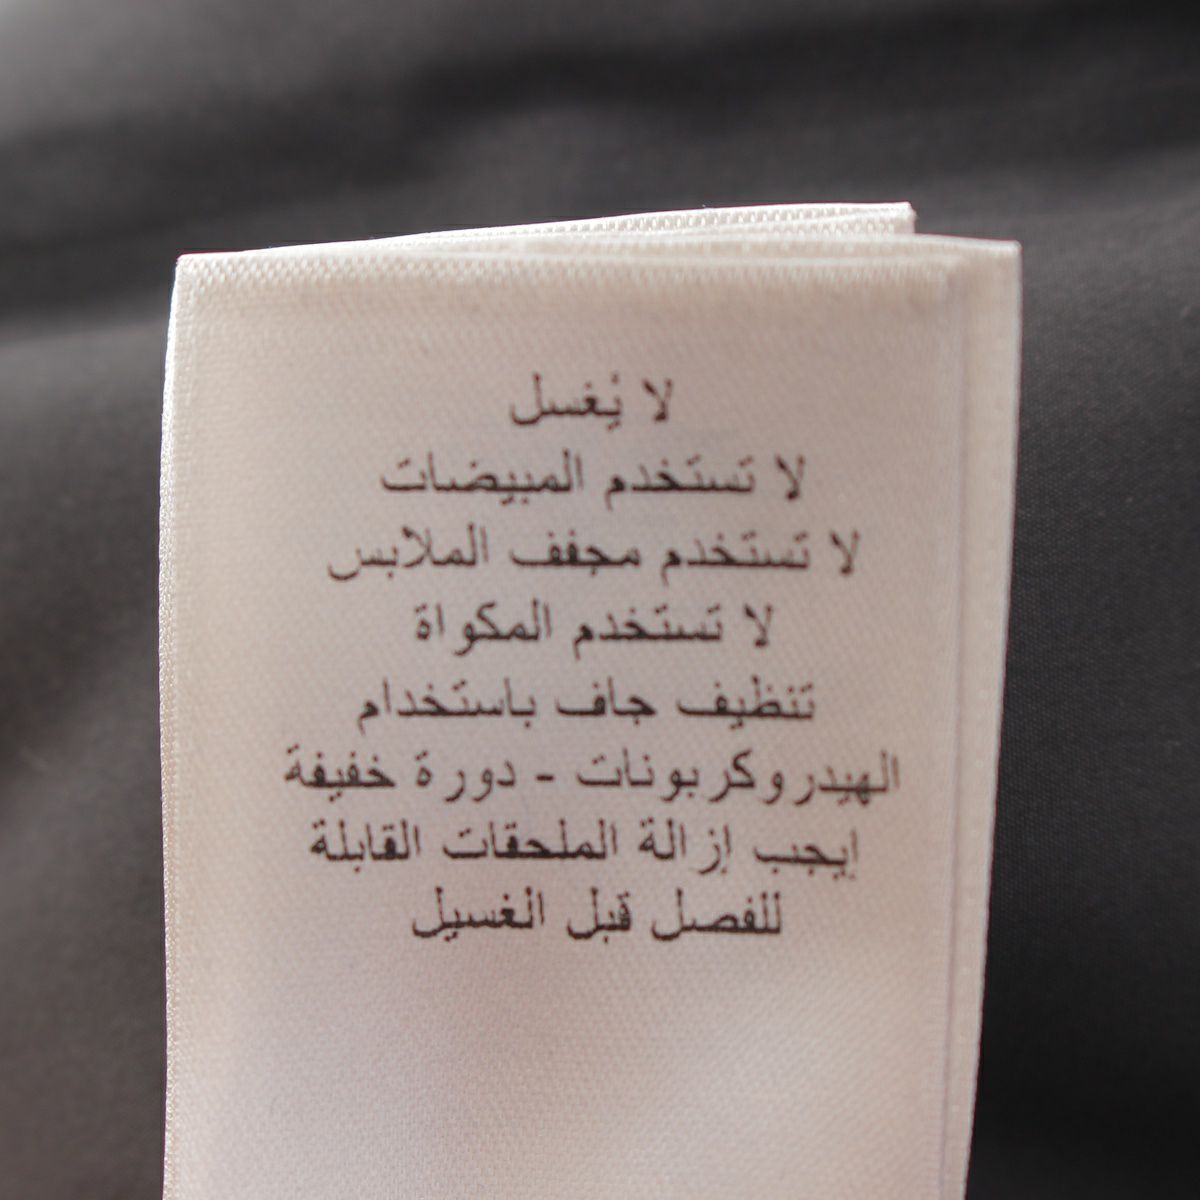 لا يُغسل
لا تستخدم المبيضات
لا تستخدم مجفف الملابس
لا تستخدم المكواة
تنظيف جاف باستخدام
الهيدروكربونات - دورة خفيفة
إيجب إزالة الملحقات القابلة
للفصل قبل الغسيل